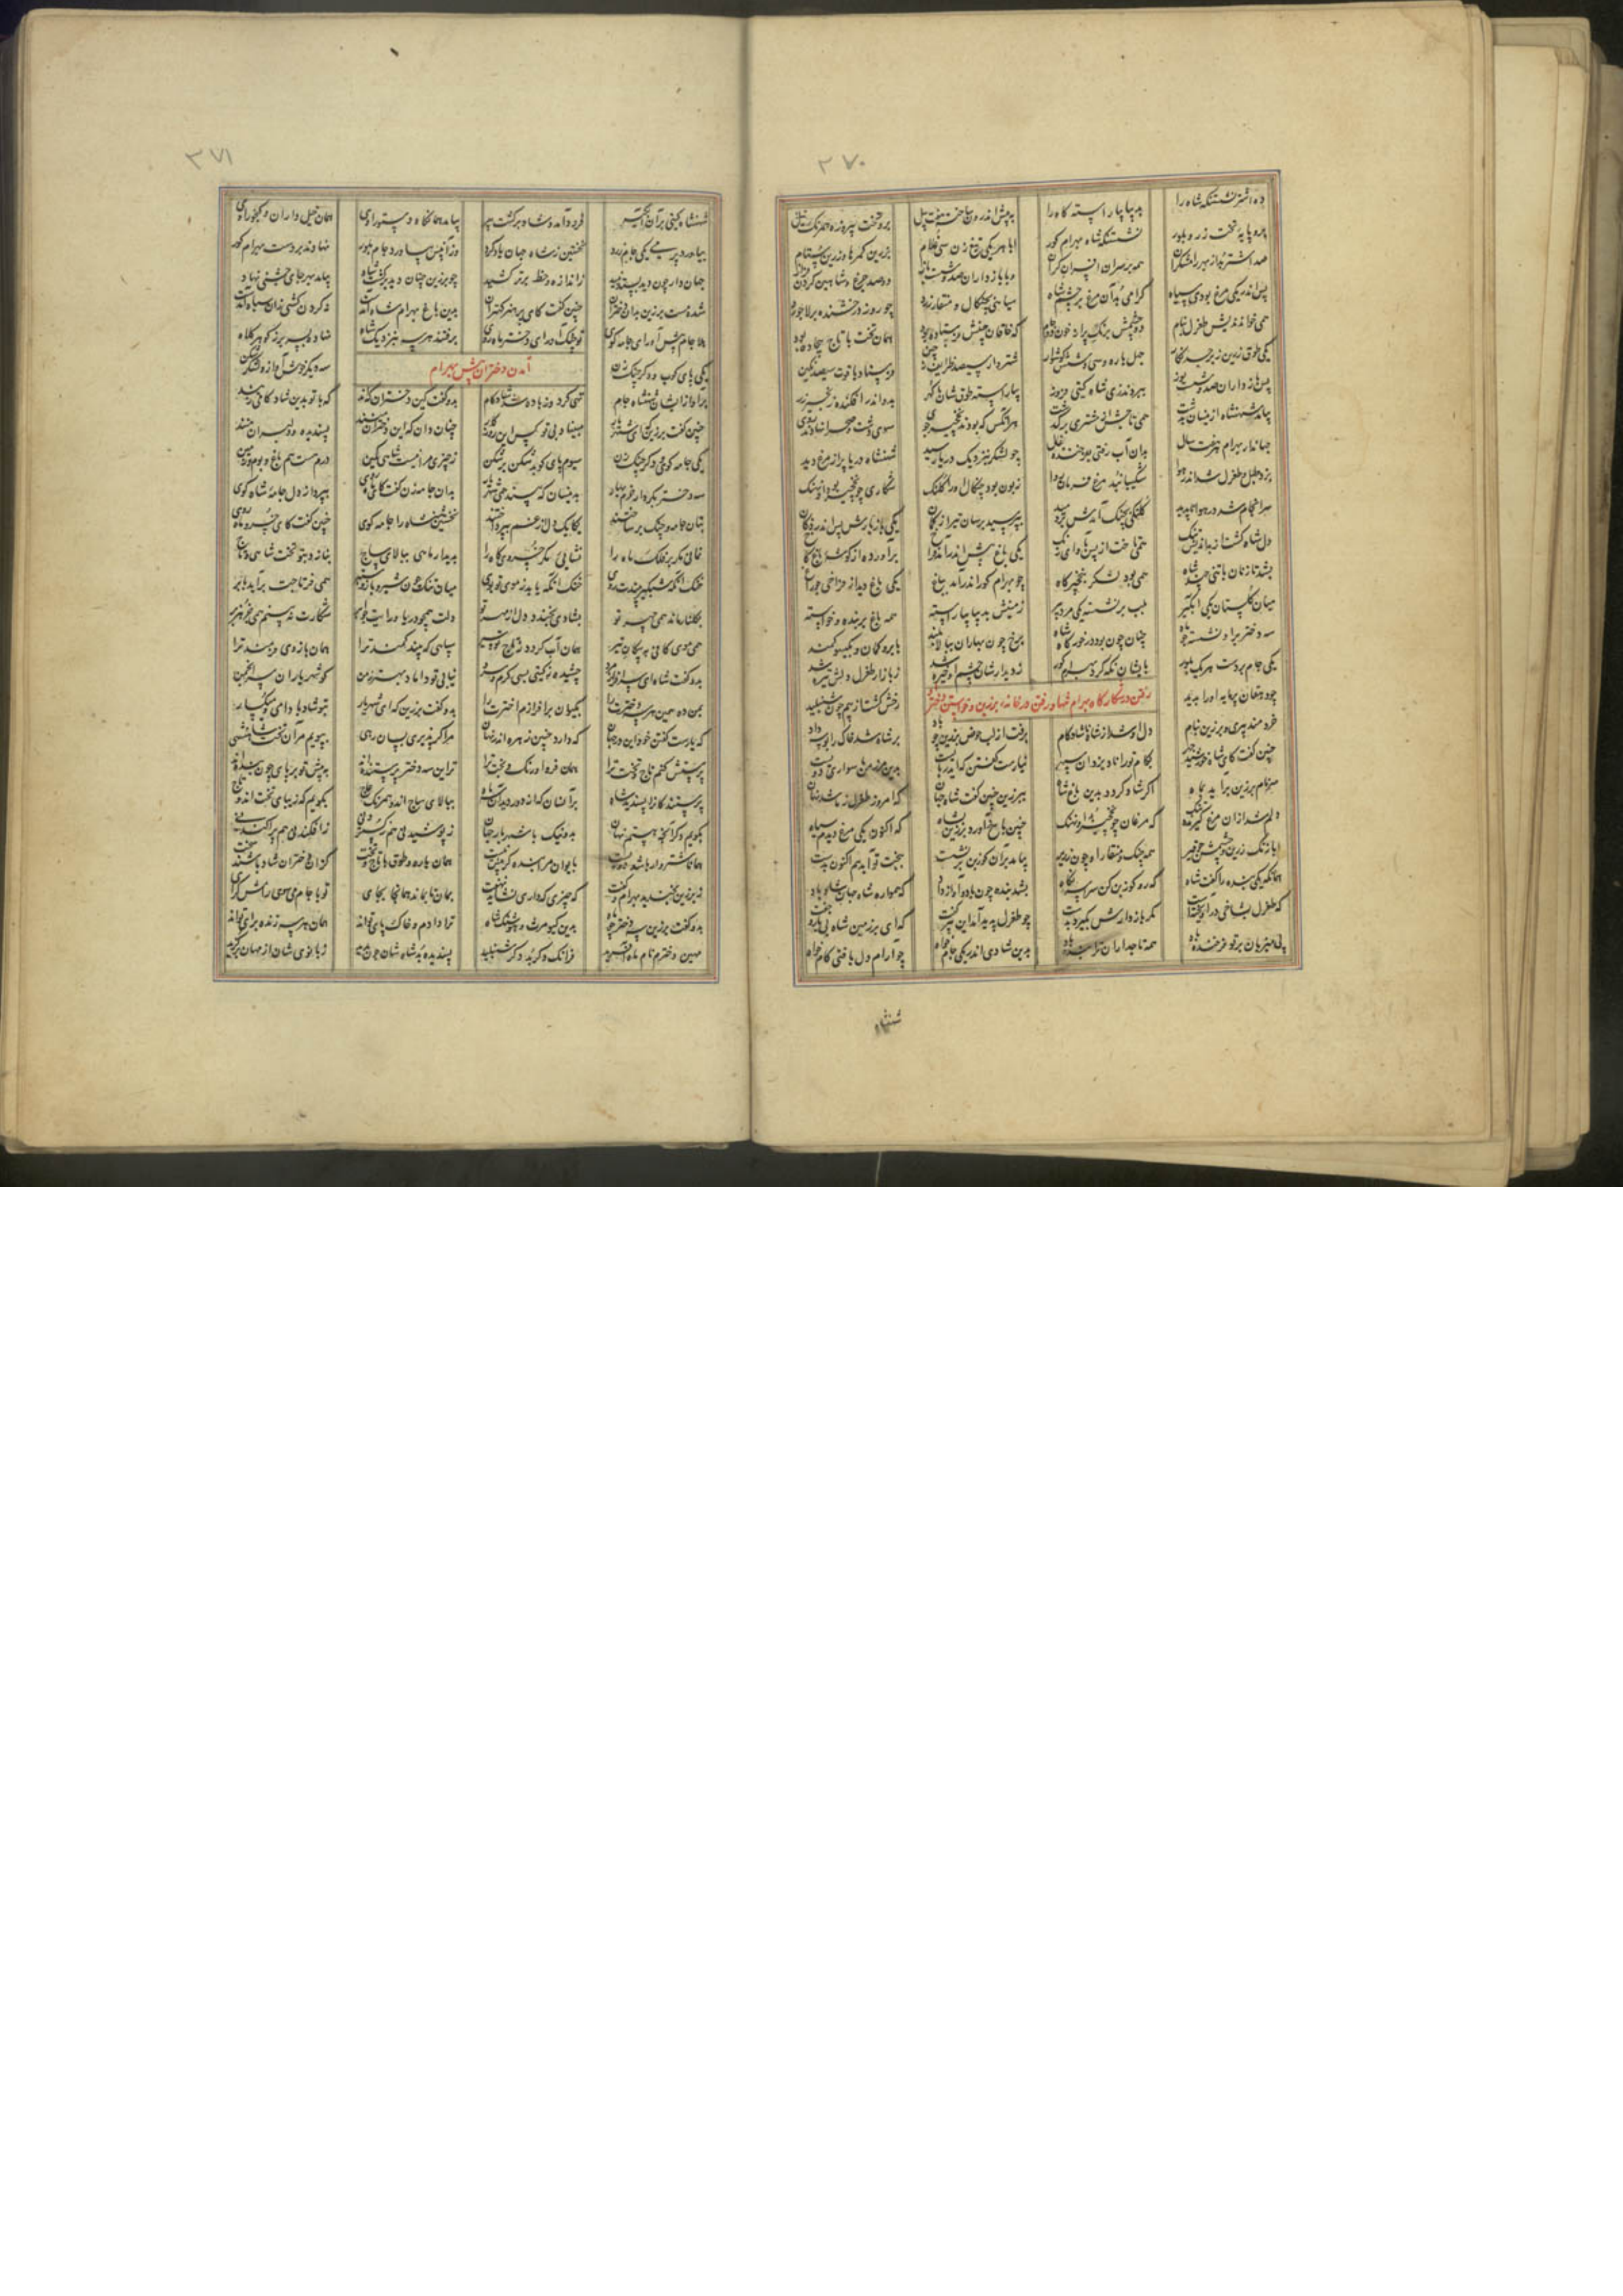 ۲۷۰
ده اشتر نشستنگه شاه را بدیبا بیاراسته گاه را به پیش اندرون ساخت هفت پیل برو تخت پیروزه همرنگ نیل
تخت زر و بلور نشستنگه شاه بهرام گور ابا هر یکی تیغ زن سی غلام بزرین کمرها و زرین ستام
صد اشتر بد از بهر رامشگران همه بر سران افسران گران ابا بازداران صد و شصت باز دو صد چرغ و شاهین گردن فراز
پس اندر یکی مرغ بودی سیاه گرامی بد آن مرغ بر چشم شاه سیاهی بچنگال و منقار زرد چو زر درخشنده بر لاجورد
همی خواندندیش طغرل بنام دو چشمش برنگ پر از خون دو جام که خاقان چینش فرستاده بود همان تخت با تاج بیجاده بود
یکی طوق زرین زبرجد نگار چهل یاره و سی و شش گوشوار شتروار سیصد طرایف ز چین فرستاد و یاقوت سیصد نگین
پس بازداران صد و شصت یوز شاه گیتی فروز بیاراسته طوق شان با گهر بدو اندر افکنده زنجیر زر
بیامد شهنشاه ازینسان بدشت همی تاجش از مشتری برگذشت هرانکس که بودند نخچیر جوی سوی دشت و صحرا نهادند روی
جهاندار بهرام هر هفت سال بدان آب رفتی بفرخنده فال چو لشکر بنزدیک دریا رسید شهنشاه دریا پر از مرغ دید
بزد طبل و طغرل شد اندر هوا شکیبا نبد مرغ فرمان روا زبون بود چنگال او را کلنگ شکاری چو نخچیر بود
سرانجام شد در هوا ناپدید کلنگی بچنگ آمدش بپرید برسان تیر از کمان یکی بازدارش پس اندر دمان
دل شاه گشت از تنگ همی تاخت از پس بآوای زنگ یکی باغ پیش اندر آمد فراخ برآورده از گوشه باغ کاخ
بشد تازنان با تنی چند شاه همی بود لشکر بنخچیر گاه چو بهرام گور اندر آمد بباغ یکی باغ دید از فراخی چو راغ
میان گلستان یکی آبگیر بلب بر نشسته یکی مرد پیر زمینش بدیبا بیاراسته همه باغ پر بنده و خواسته
سه دختر بر او نشسته چو ماه چنان چون بود در خور گاه شاه برخ چون بهاران ببالا بلند بابرو کمان و بگیسو کمند
یکی جام بر دست هر یک بلور بدیشان نگه کرد بهرام گور ز دیدارشان چشم او خیره شد ز بازار طغرل دلش تیره شد
چو دهقان پرمایه او را بدید رخش گشت از بیم چون شنبلید
رفتن در شکارگاه بهرام تنها و رفتن در خانه برزین و خواستن دختر
خردمند پیری و برزین بنام دل او شد از شاه ناشادکام برفت از لب حوض برزین چو باد بر شاه شد خاک را بوسه داد
چنین گفت کای شاه خورشید چهر بکام تو گرداناد یزدان سپهر نیارست گفتن که ایدر بایست بدین مرز من با سواری دویست
سر نام برزین برآید بماه اگر شاه گردد بدین باغ شاد ببرزین چنین گفت شاه جهان که امروز طغرل ز ما شد نهان
دلم شد از آن مرغ گیرنده تنگ که مرغان چو نخچیر چنین پاسخ آورد برزین بشاه که اکنون یکی مرغ دیدم سیاه
ابا زنگ زرین همه چنگ و منقار او چون زریر بیامد بر آن گوزبن برنشست ببخت تو آید هم اکنون بدست
همانگه یکی بنده را گفت شاه که رو گوزبن کن سراسر نگاه بشد بنده چون باد و آواز داد که همواره شاه جهان شاد باد
که طغرل بشاخی درآویختست مگر بازدارش بگیرد بدست چو طغرل پدید آمد این پیر گفت که ای بر زمین شاه بی یار و جفت
پی میزبان بر تو فرخنده باد همه تاجداران ترا بنده باد بدین شادی اندر یکی جام خواه چو آرام دل یافتی کام خواه
شهنشاه
۲۷۱
شهنشاه گیتی بر آن آبگیر فرود آمد و شاد برگشت پیر بیامد همانگاه دستور اوی همان خیل داران و گنجور اوی
بیاورد برزین یکی جام زرد نخستین ز شاه جهان یاد کرد وزان پس بیاورد جام بلور نهادند بر دست بهرام گور
جهاندار چون دید بستد نبید از اندازه خط برتر کشید چو برزین چنان دید برگشت شاد بیامد بهر جای خمی نهاد
شده مست برزین بدان دختران چنین گفت کای پر هنر کهتران بدین باغ بهرام شاه آمدست نه گردن کشی زان سپاه آمدست
هلا جام پیش آور ای چامه گوی تو چنگ آور ای دختر ماه روی برفتند هر سه بنزدیک شاه نهاده بسر بر ز گوهر کلاه
یکی پای کوب و دگر چنگ زن سه دیگر خوش آواز
آمدن دختران پیش بهرام
بر آواز ایشان شهنشاه جام تهی کرد وز باده شد شادکام بدو گفت کاین دختران که اند که با تو بدین شادکامی زیند
چنین گفت برزین که ای شهریار مبیناد بی تو کس این روزگار چنان دان که این دختران منند پسندیده و دلبران منند
یکی چامه گوی و دگر چنگ زن سیوم پای کوبد شکن بر شکن ز چیزی مرا نیست شاها کمین درم هست هم باغ و بوم و زمین
سه دختر بکردار خرم بهار بدینسان که بیند همی شهریار بدان چامه زن گفت کای ماه روی بپرداز دل چامه شاه گوی
بتان چامه و چنگ برساختند یکایک دل از غم بپرداختند نخستین شهنشاه را چامه گوی چنین گفت کای خسرو ماه روی
نمانی مگر بر فلک ماه را نشایی مگر خسروی گاه را بدیدار ماهی ببالای ساج بنازد بتو تخت شاهی و تاج
خنک آنکه شبگیر بیندت روی خنک آنکه یابد ز موی تو بوی میان تنگ چون شیر و بازو ستبر همی فر تاجت برآید بابر
بگلنار ماند همی چهر تو بشادی بخندد دل از مهر تو دلت همچو دریا و رایت چو ابر شکارت نبینم همی جز هژبر
همی موی کافی به پیکان تیر همان آب گردد ز تو جوی شیر سپاهی که بیند کمند ترا همان بازوی زورمند ترا
بدو گفت شاه ای سرافراز مرد چشیده ز گیتی بسی گرم و سرد نیابی تو داماد بهتر ز من گو شهریاران سر انجمن
بمن ده همین هر سه دختر را بکیوان برافرازم اختر را بدو گفت برزین که ای شهریار بتو شاد بادا می و میگسار
که یارست گفتن خود این در جهان که دارد چنین زهره اندر نهان مرا گر پذیری بسان رهی بپویم مر آن تخت شاهنشهی
پرستش کنم تاج و تخت ترا همان فر و اورنگ و بخت ترا ترا این سه دختر پرستنده اند به پیش تو بر پای چون بنده اند
پرستندگان را پسندید شاه بر آنسان که از دور دیدند ماه ببالای ساج اند و همرنگ عاج بگویم که زیبای تخت اند و تاج
بگویم دگر آنچه هستم نهان بد و نیک با شهریار جهان ز پوشیدنی هم ز گستردنی ز افکندنی هم پراکندنی
همانا شتروار باشد دویست بایوان من بنده گر بیش نیست همان یاره و طوق با تاج و تخت کزان دختران شاد باشند
ز برزین بخندید بهرام و گفت که چیزی که داری نشاید نهفت بمان تا بماند همانجا بجای تو با جام می سوی رامش گرای
بدو گفت برزین سه دختر چو ماه بدین کیومرث و هوشنگ شاه ترا دادم و خاک پای تواند همان هر سه زنده برای تواند
مهین دخترم نام ماه آفرید فرانک دگر بد دگر شنبلید پسندیده بد شاه شان چون بدید ز بانوی شان از مهان برگزید